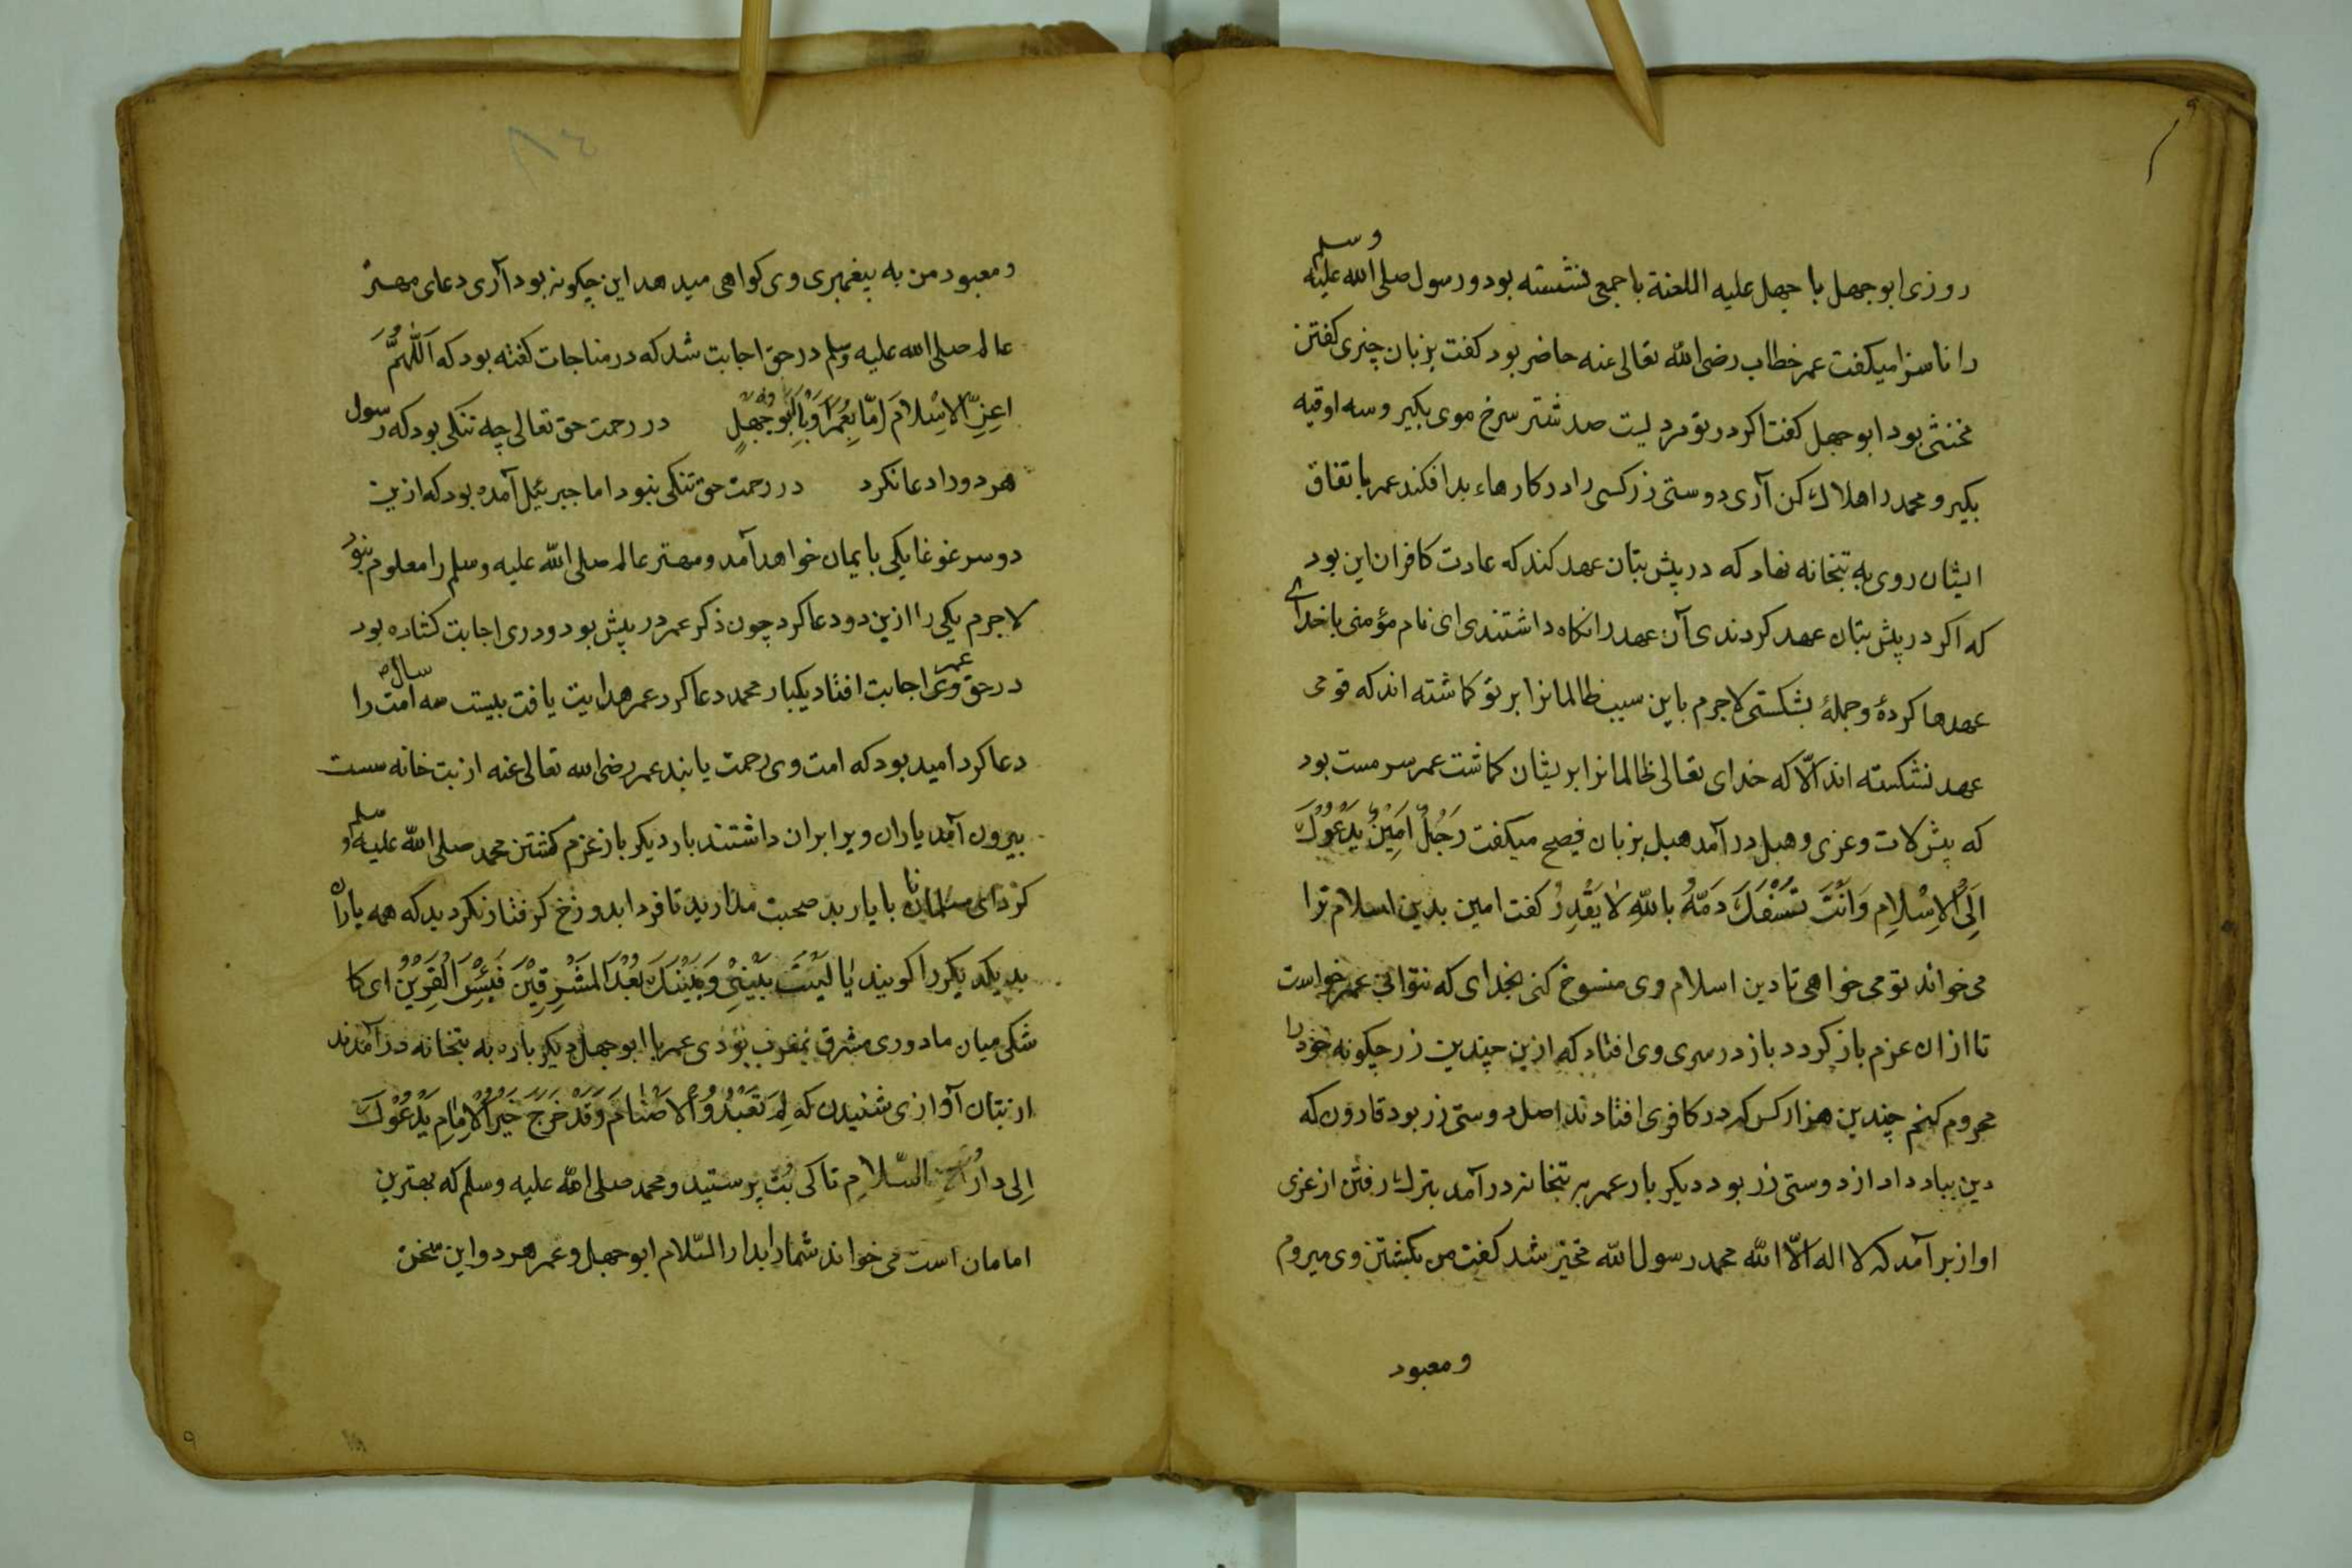 روزی ابوجهل با جهل علیه اللعنة با جمعی نشسته بود و رسول صلی الله علیه وسلم
را ناسزا میکفت عمر خطاب رضی الله تعالی عنه حاضر بود کفت بزبان چیزی کفتن
مخنثی بود ابوجهل کفت اکر در تو مردیست صد شتر سرخ موی بکیر و سه اوقیه
بکیر و محمد را هلاک کن آری دوستی زر کسی را در کارهاء بد افکند عمر باتفاق
ایشان روی به بتخانه نهاد که در پیش بتان عهد کند که عادت کافران این بود
که اکر در پیش بتان عهد کردندی آن عهد را نکاه داشتندی ای نام مؤمنی با خدای
عهدها کردهٔ و جملهٔ بشکستی لاجرم باین سبب ظالمانرا بر تو کماشته اند که قومی
عهد نشکسته اند الّا که خدای تعالی ظالمانرا بر یشان کماشت عمر سرمست بود
که پیش لات و عزی و هبل درآمد هبل بزبان فصیح میکفت رَجُلٌ اَمِیْنٌ یَدْعُوْکَ
اِلَی الْاِسْلَامِ وَاَنْتَ تَسْفَکَ دَمَّهُ بِاللهِ لَا یَقْدِرُ کفت امین بدین اسلام ترا
می خواند تو می خواهی تا دین اسلام وی منسوخ کنی بخدای که نتوانی عمر خواست
تا ازان عزم باز کردد باز در سری وی افتاد که ازین چندین زر چکونه خود را
محروم کنم چندین هزار کس که در کافری افتادند اصل دوستی زر بود قارون که
دین بباد داد از دوستی زر بود دیکر بار عمر به بتخانه درآمد بترک رفتن از عزی
اواز برآمد که لا اله الّا الله محمد رسول الله متحیّر شد کفت من بکشتن وی میروم
و معبود
و معبود من به پیغمبری وی کواهی میدهد این چکونه بود آری دعای مهتر
عالم صلی الله علیه وسلم در حق اجابت شد که در مناجات کفته بود که اَللّهُمَّ
اعِزِّ الاِسْلامَ اِمّا بِعُمَرَ اَوْ بِاَبُو جَهْلٍ در رحمت حق تعالی چه تنکی بود که رسول
هر دو را دعا نکرد در رحمت حق تنکی نبود اما جبرئیل آمده بود که ازین
دو سر غوغا یکی بایمان خواهد آمد و مهتر عالم صلی الله علیه وسلم را معلوم نبود
لاجرم یکی را ازین دو دعا کرد چون ذکر عمر در پیش بود و دری اجابت کشاده بود
در حق وی عمر اجابت افتاد یکبار محمد دعا کرد عمر هدایت یافت بیست سه سال امت را
دعا کرد امید بود که امت وی رحمت یابند عمر رضی الله تعالی عنه از بت خانه سست
بیرون آمد یاران ویرا بران داشتند بار دیکر باز عزم کشتن محمد صلی الله علیه وسلم
کرد ای مسلمانان با یار بد صحبت مدارید تا فردا بدوزخ کرفتار نکردید که همه یاران
بد یکدیکر را کویند یَا لَیْتَ بَیْنِیْ وَبَیْنَکَ بُعْدَ الْمَشْرِقَیْنِ فَبِئْسَ الْقَرِیْنُ ای کا
شکی میان ما دوری مشرق بمغرب بودی عمر با ابوجهل دیکر باره به بتخانه درآمدند
از بتان آوازی شنیدن که لِمَ تَعْبُدُوْ الْاَصْنَامَ وَقَدْ خَرَجَ خَیْرُ الْاِمَامِ یَدْعُوْکَ
اِلی دارُ السّلَامِ تا کی بُت پرستید و محمد صلی الله علیه وسلم که بهترین
امامان است می خواند شمارا بدار السّلام ابوجهل و عمر هر دو این سخن